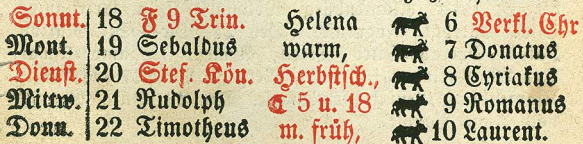 Sonnt. 18 F 9 Trin. Helena 6 Verkl. Chr
Mont. 19 Sebaldus warm, 7 Donatus
Dienst. 20 Stef. Kön. Herbstsch., 8 Cyriakus
Mittw. 21 Rudolph ☾ 5 u. 18 9 Romanus
Donn. 22 Timotheus m. früh, 10 Laurent.